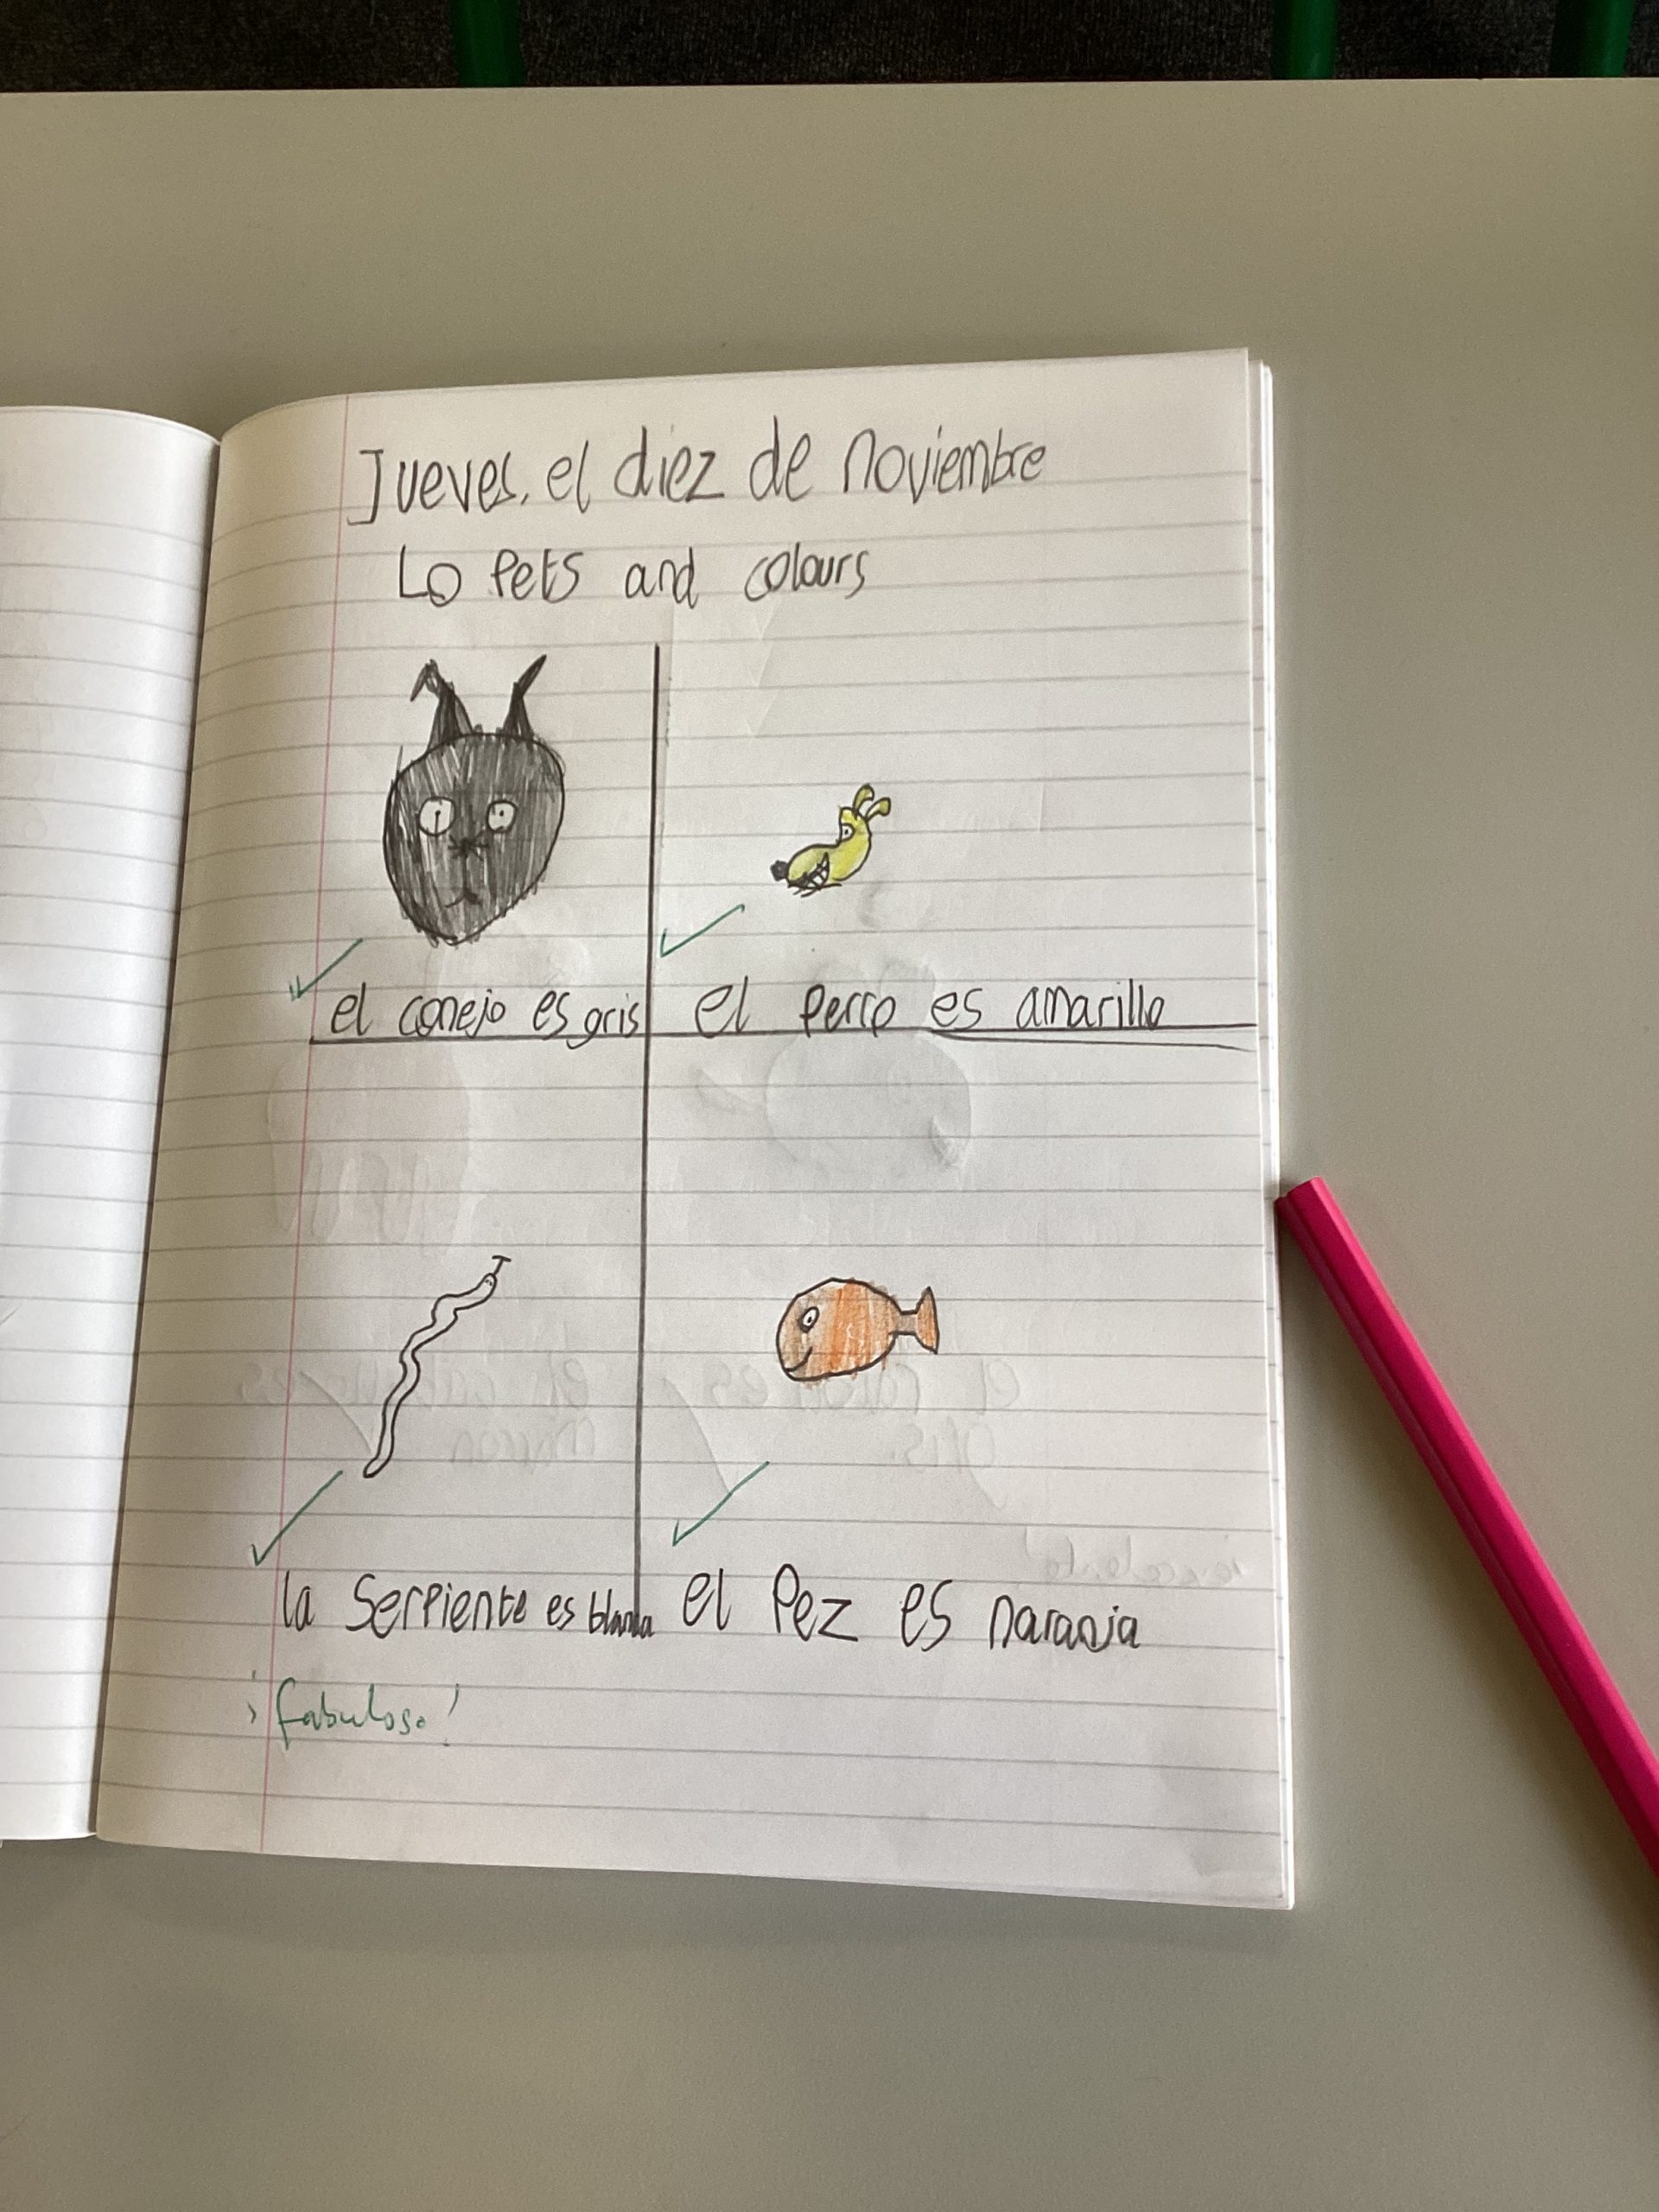 Jueves, el diez de noviembre
LO Pets and colours
el conejo es gris
el perro es amarillo
la Serpiente es blanca
el Pez es naranja
¡fabuloso!